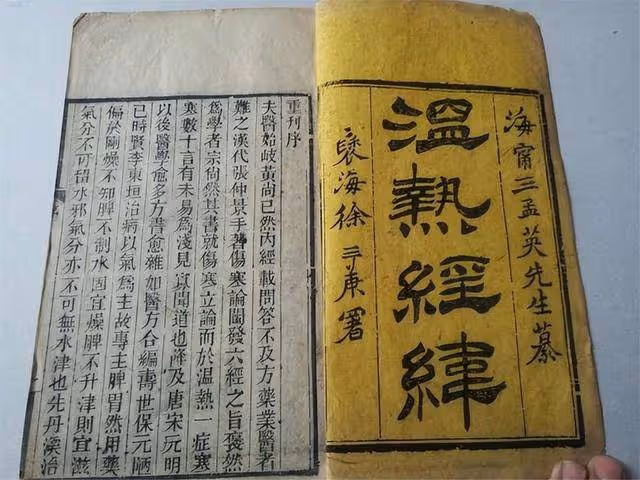 海甯王孟英先生纂
溫熱經緯
褎海徐三庚署
重刊序
夫醫始岐黃尚已然內經載問答不及方藥業醫者
難之漢代張仲景手著傷寒論闡發六經之旨褎然
爲學者宗尚然其書就傷寒立論而於溫熱一症寒
寒數十言有未易爲淺見寡聞道也降及唐宋元明
以後醫學愈多方書愈雜如醫方合編壽世保元陋
已時賢李東垣治病以氣爲主故專主脾胃然用藥
偏於剛燥不知脾不制水固宜燥脾不升津則宜滋
氣分不可積水邪氣分亦不可無水津也先丹溪治